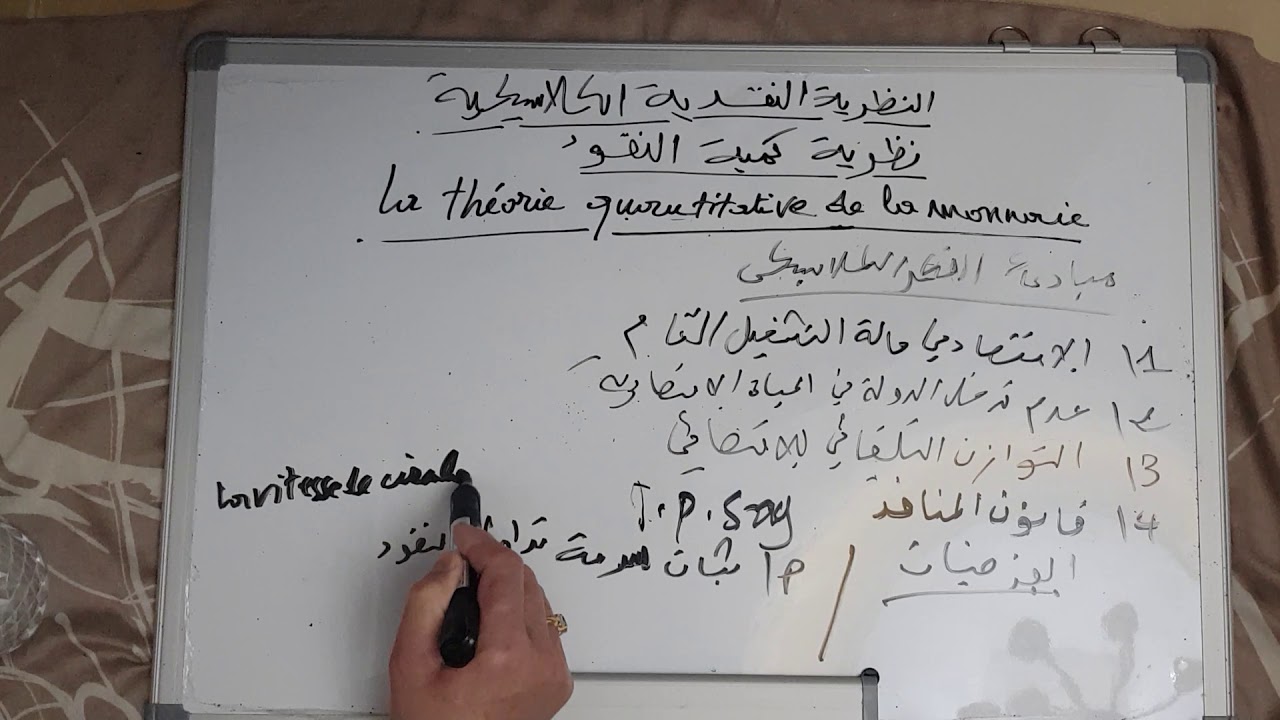 النظرية النقدية الكلاسيكية
نظرية كمية النقود
La théorie quantitative de la monnaie
مبادئ الفكر الكلاسيكي
1\ الاقتصاد في حالة التشغيل التام
2\ عدم تدخل الدولة في الحياة الاقتصادية
3\ التوازن التلقائي للاقتصاد
4\ قانون المنافذ J.P.Say
الفرضيات / ثبات سرعة تداول النقود
la vitesse de